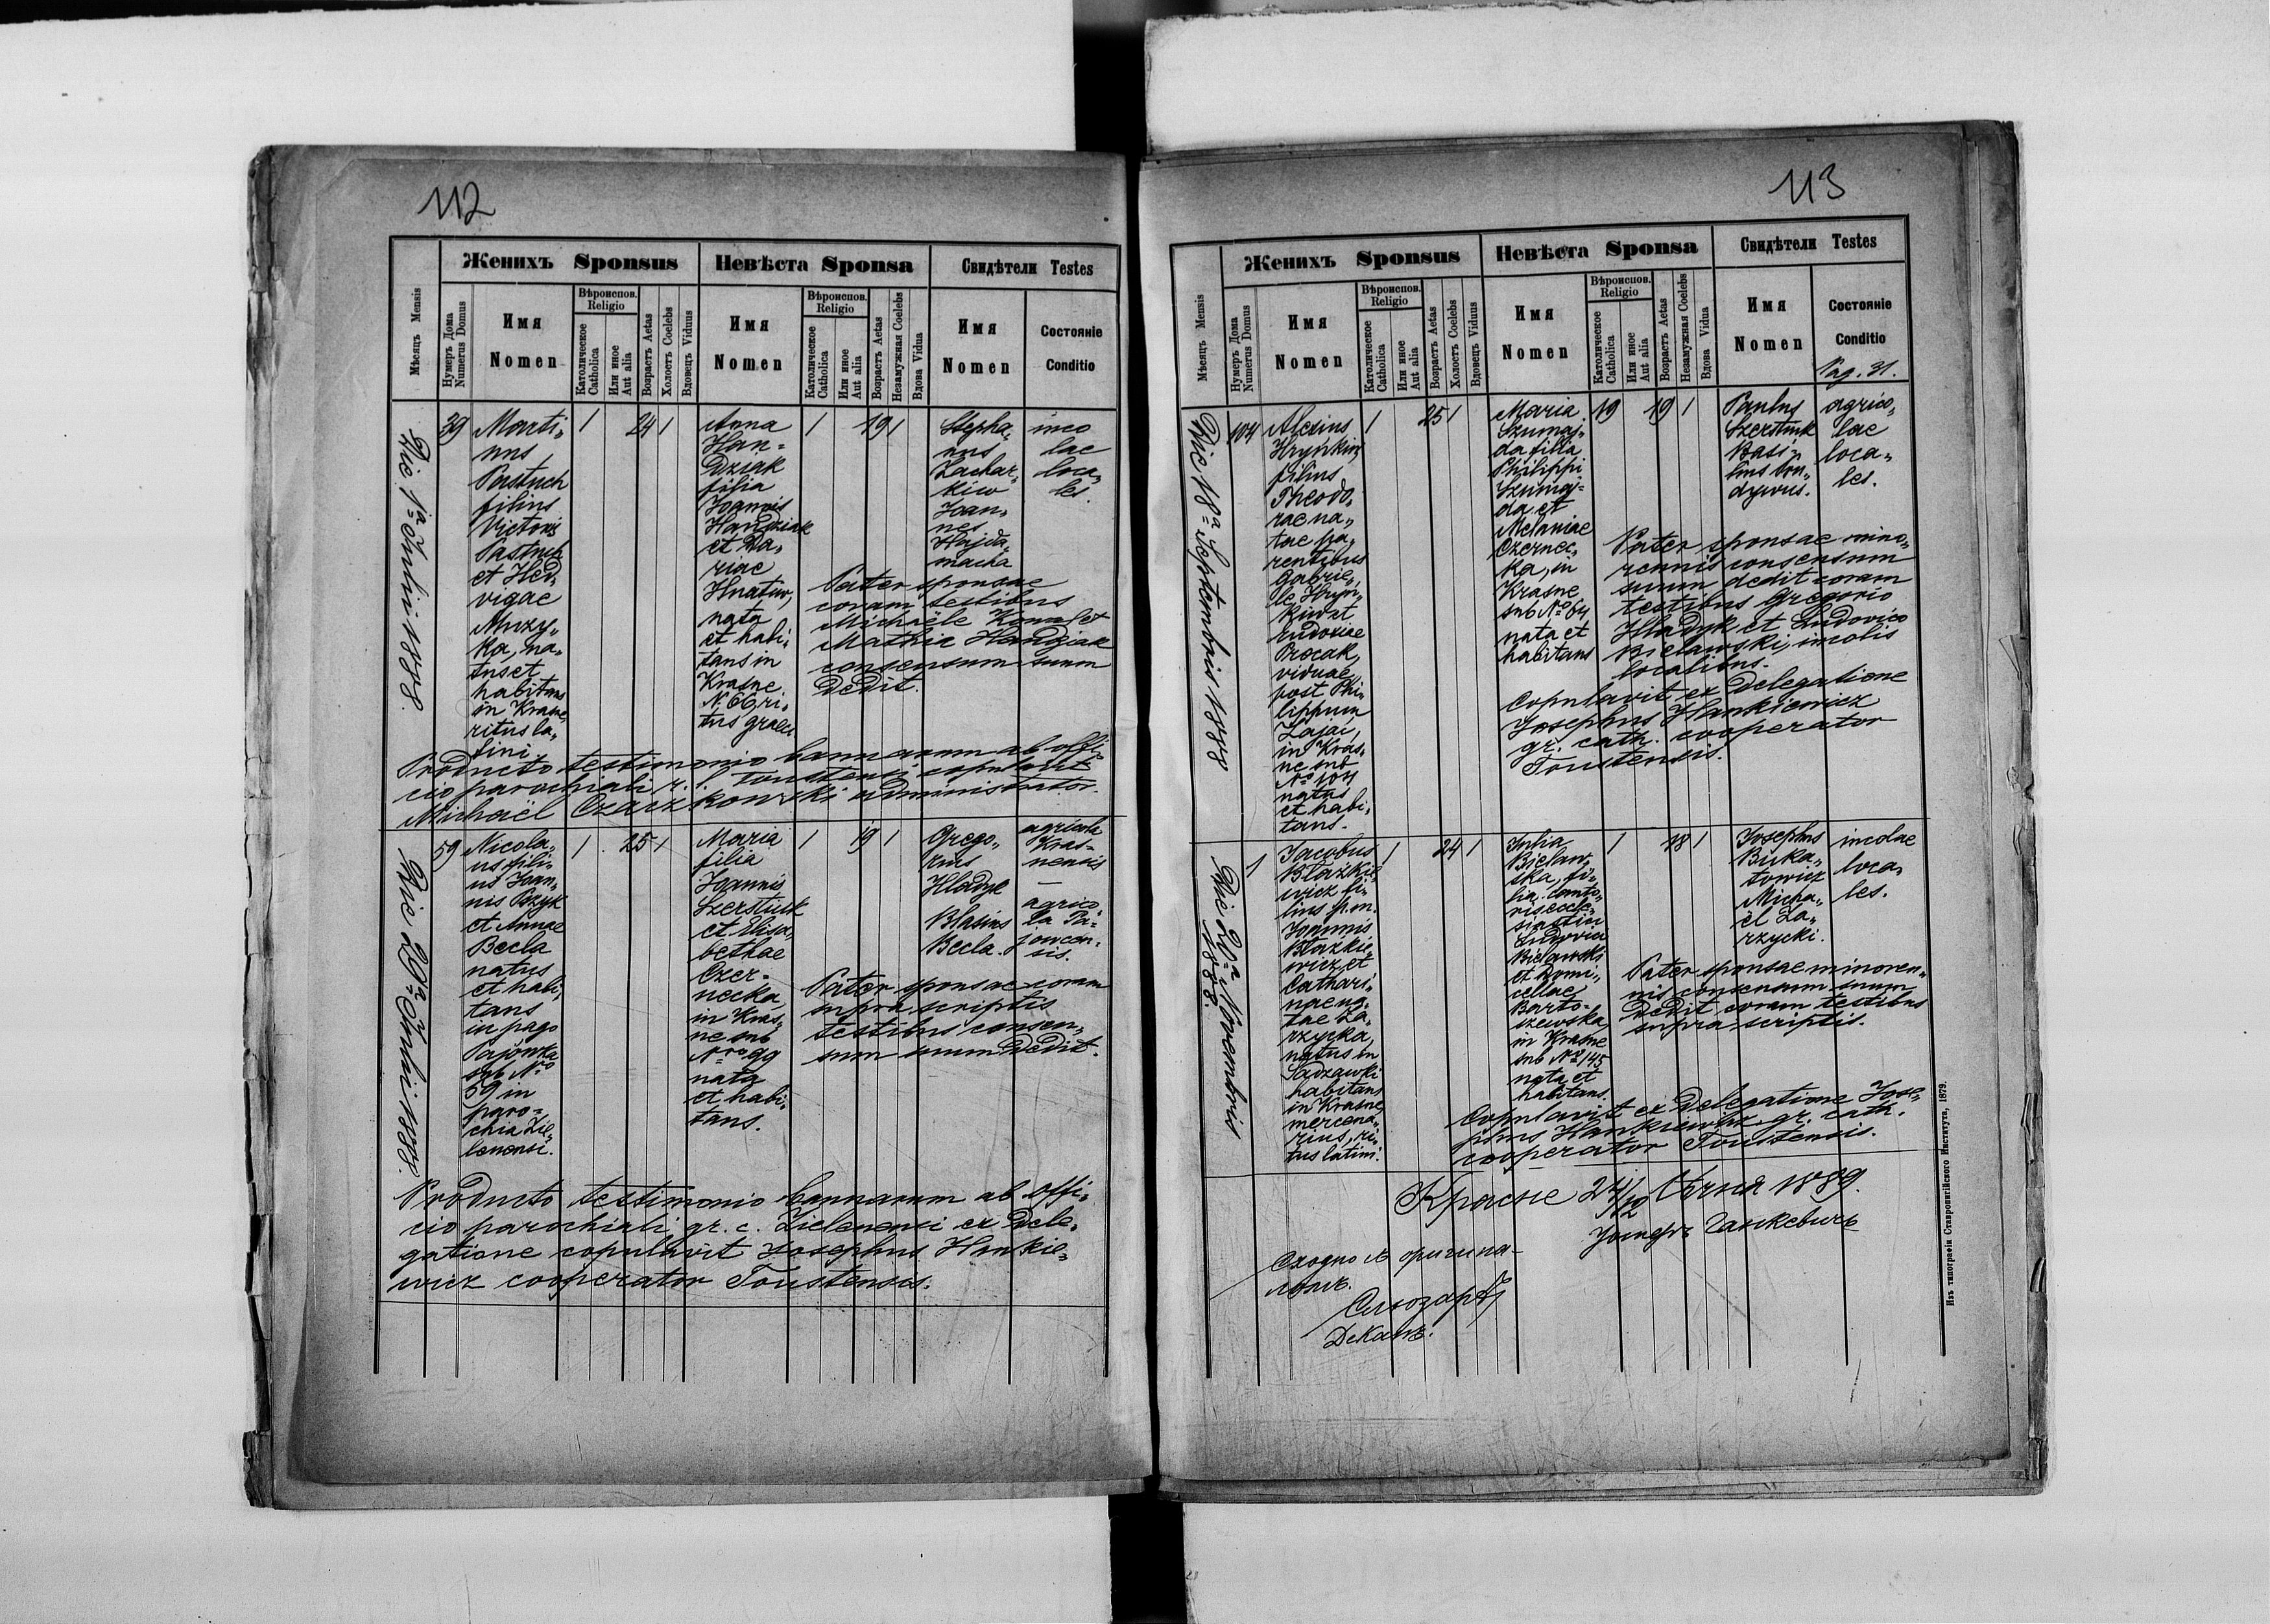 112
Женихъ Sponsus
Невѣста Sponsa
Свидѣтели Testes
Мѣсяцъ Mensis
Нумеръ Дома
Numerus Domus
Имя
Nomen
Вѣроиспов.
Religio
Католическое
Catholica
Или иное
Aut alia
Возрастъ Aetas
Холостъ Coelebs
Вдовецъ Viduus
Имя
Nomen
Вѣроиспов.
Religio
Католическое
Catholica
Или иное
Aut alia
Возрастъ Aetas
Незамужная Coelebs
Вдова Vidua
Имя
Nomen
Состояніе
Conditio
Die 1ª Julii 1888.
39
Marti„
nus
Pastuch
filius
Victoris
Pastuch
et Hed„
vigae
Muzy„
ka, na„
tus et
habitans
in Krasne,
ritus la„
tini
1
24
1
Anna
Han=
dziak
filia
Joannis
Handziak
et Da„
riae
Hnatiw,
nata
et habi„
tans in
Krasne
N. 66 ri„
tus graeci
1
19
1
Stepha„
nus
Zachar„
kiw
Joan„
nes
Hajda„
macha
inco
lae
loca„
les.
Pater sponsae
coram testibus
Michaële Kowal et
Mathia Handziak
consensum suum
dedit.
Producto testimonio bannarum ab offi„
cio parochiali r. l. Toustensi copulavit
Michaël Czaczkowski administrator.
59
Nicola„
us fili„
us Joan„
nis Bzyk
et Annae
Becla
natus
et habi„
tans
in pago
Pajówka
sub No
59 in
paro=
chia Zie„
lenensi.
1
25
1
Maria
filia
Joannis
Szerstiuk
et Elisa„
bethae
Czer=
necka
in Kras„
ne sub
Nro 99
nata
et habi„
tans.
1
19
1
Grego„
rius
Hladyk
Blasius
Becla.
agricola
Kras=
nensis
—
agrico„
la Pa„
jowcen„
sis.
Pater sponsae coram
supra scriptis
testibus consen„
sum suum dedit.
Producto testimonio bannarum ab offi„
cio parochiali gr. c. Zielenensi ex dele„
gatione copulavit Josephus Hankie„
wicz cooperator Toustensis.
113
Женихъ Sponsus
Невѣста Sponsa
Свидѣтели Testes
Мѣсяцъ Mensis
Нумеръ Дома
Numerus Domus
Имя
Nomen
Вѣроиспов.
Religio
Католическое
Catholica
Или иное
Aut alia
Возрастъ Aetas
Холостъ Coelebs
Вдовецъ Viduus
Имя
Nomen
Вѣроиспов.
Religio
Католическое
Catholica
Или иное
Aut alia
Возрастъ Aetas
Незамужная Coelebs
Вдова Vidua
Имя
Nomen
Состояніе
Conditio
Pag. 31.
Die 18ª Septembris 1888
104
Alexius
Hryńkiw
filius
Theodo„
rae na„
tae pa„
rentibus
Gabrie„
le Hryń„
kiw et
Eudoxiae
Procak,
viduae
post Phi„
lippum
Zajac,
in Kras„
ne sub
No 104
natus
et habi„
tans.
1
25
1
Maria
Szumaj=
da filia
Philippi
Szumaj=
da et
Melaniae
Czernec„
ka, in
Krasne
sub No 64
nata et
habitans
19
19
1
Paulus
Szerstiuk
Basi„
lius Bon„
dyrus.
agrico„
lae
loca„
les.
Pater sponsae mino„
rennis consensum
suum dedit coram
testibus Gregorio
Hladyk et Ludovico
Bielawski, incolis
localibus.
Copulavit ex delegatione
Josephus Hankiewicz
gr. cath. cooperator
Toustensis.
Novembris
1888.
1
Jacobus
Błażkie„
wicz fi„
lius p. m.
Joannis
Błażkie„
wicz et
Cathari„
nae na„
tae Za„
rzycka,
natus in
Sadzawki
habitans
in Krasne
mercena„
rius, ri„
tus latini.
1
24
1
Julia
Bielaw„
ska, fi„
lia canto„
ris eccle„
siastici
Ludovici
Bielawski
et Domi„
cellae
Barto=
szewska
in Krasne
sub No 145
nata et
habitans.
1
18
1
Josephus
Buka„
towicz
Micha„
ël Za„
rzycki.
incolae
loca„
les.
Pater sponsae minoren„
nis consensum suum
dedit coram testibus
supra scriptis.
Copulavit ex delegatione Jose„
phus Hankiewicz gr. cath.
cooperator Toustensis.
Красне 24/12 1889.
Іосифъ Ганкевичъ
Сходно съ оригина-
ломъ.
Деканъ.
Изъ типографіи Ставропигійского Института, 1879.